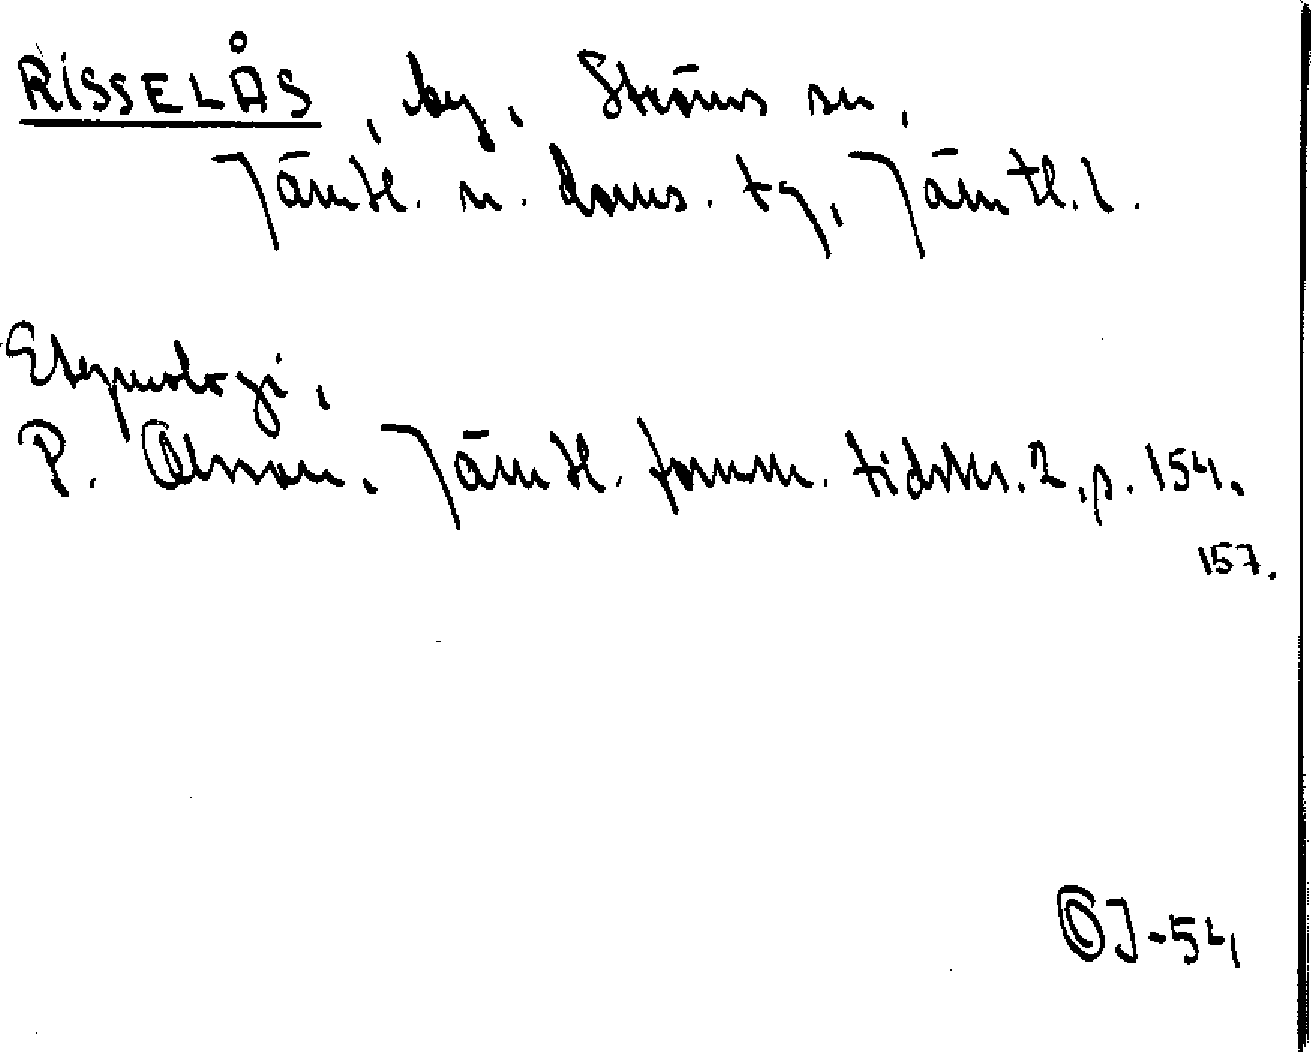 RISSELÅS, by, Ströms sn,
Jämtl. n. doms. tg, Jämtl. l.
Etymologi.
P. Olsson. Jämtl. fornm. tidskr. 2, p. 154.
157.
OJ-54